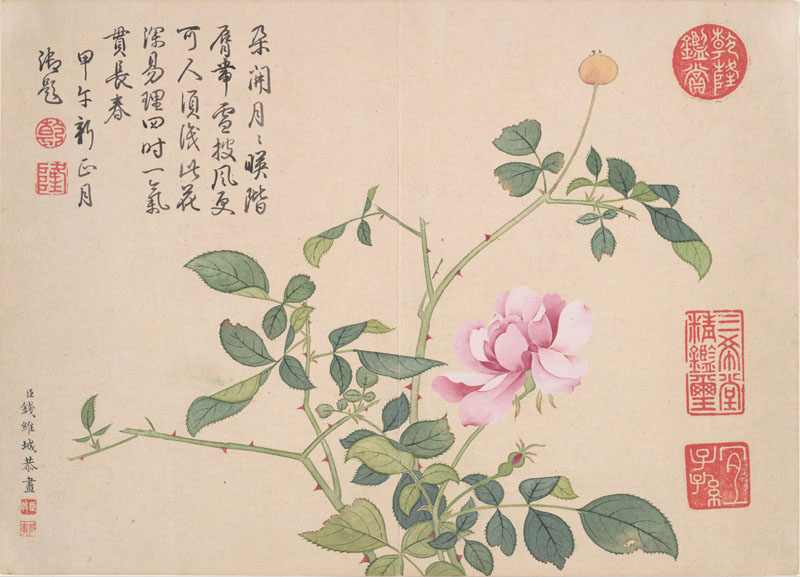 朶開月〻暎階
脣帶雪披風更
可人須識此花
深易理四時一氣
貫長春
甲午新正月
御題
乾
隆
臣錢維城恭畫
乾隆鑑賞
三希堂精鑑璽
宜子孫